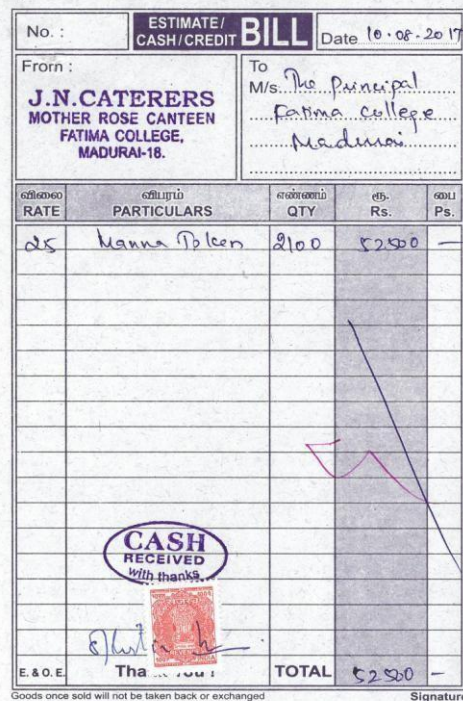 No. :
ESTIMATE/
CASH/CREDIT BILL
Date 10-08-2017
From :
J.N.CATERERS
MOTHER ROSE CANTEEN
FATIMA COLLEGE,
MADURAI-18.
To
M/s. The Principal
Fatima College
Madurai
விலை விபரம் எண்ணம் ரூ. பை
RATE PARTICULARS QTY Rs. Ps.
25 Manna Token 2100 52500 —
CASH
RECEIVED
with thanks
E. & O. E. TOTAL 52500 —
Goods once sold will not be taken back or exchanged Signature